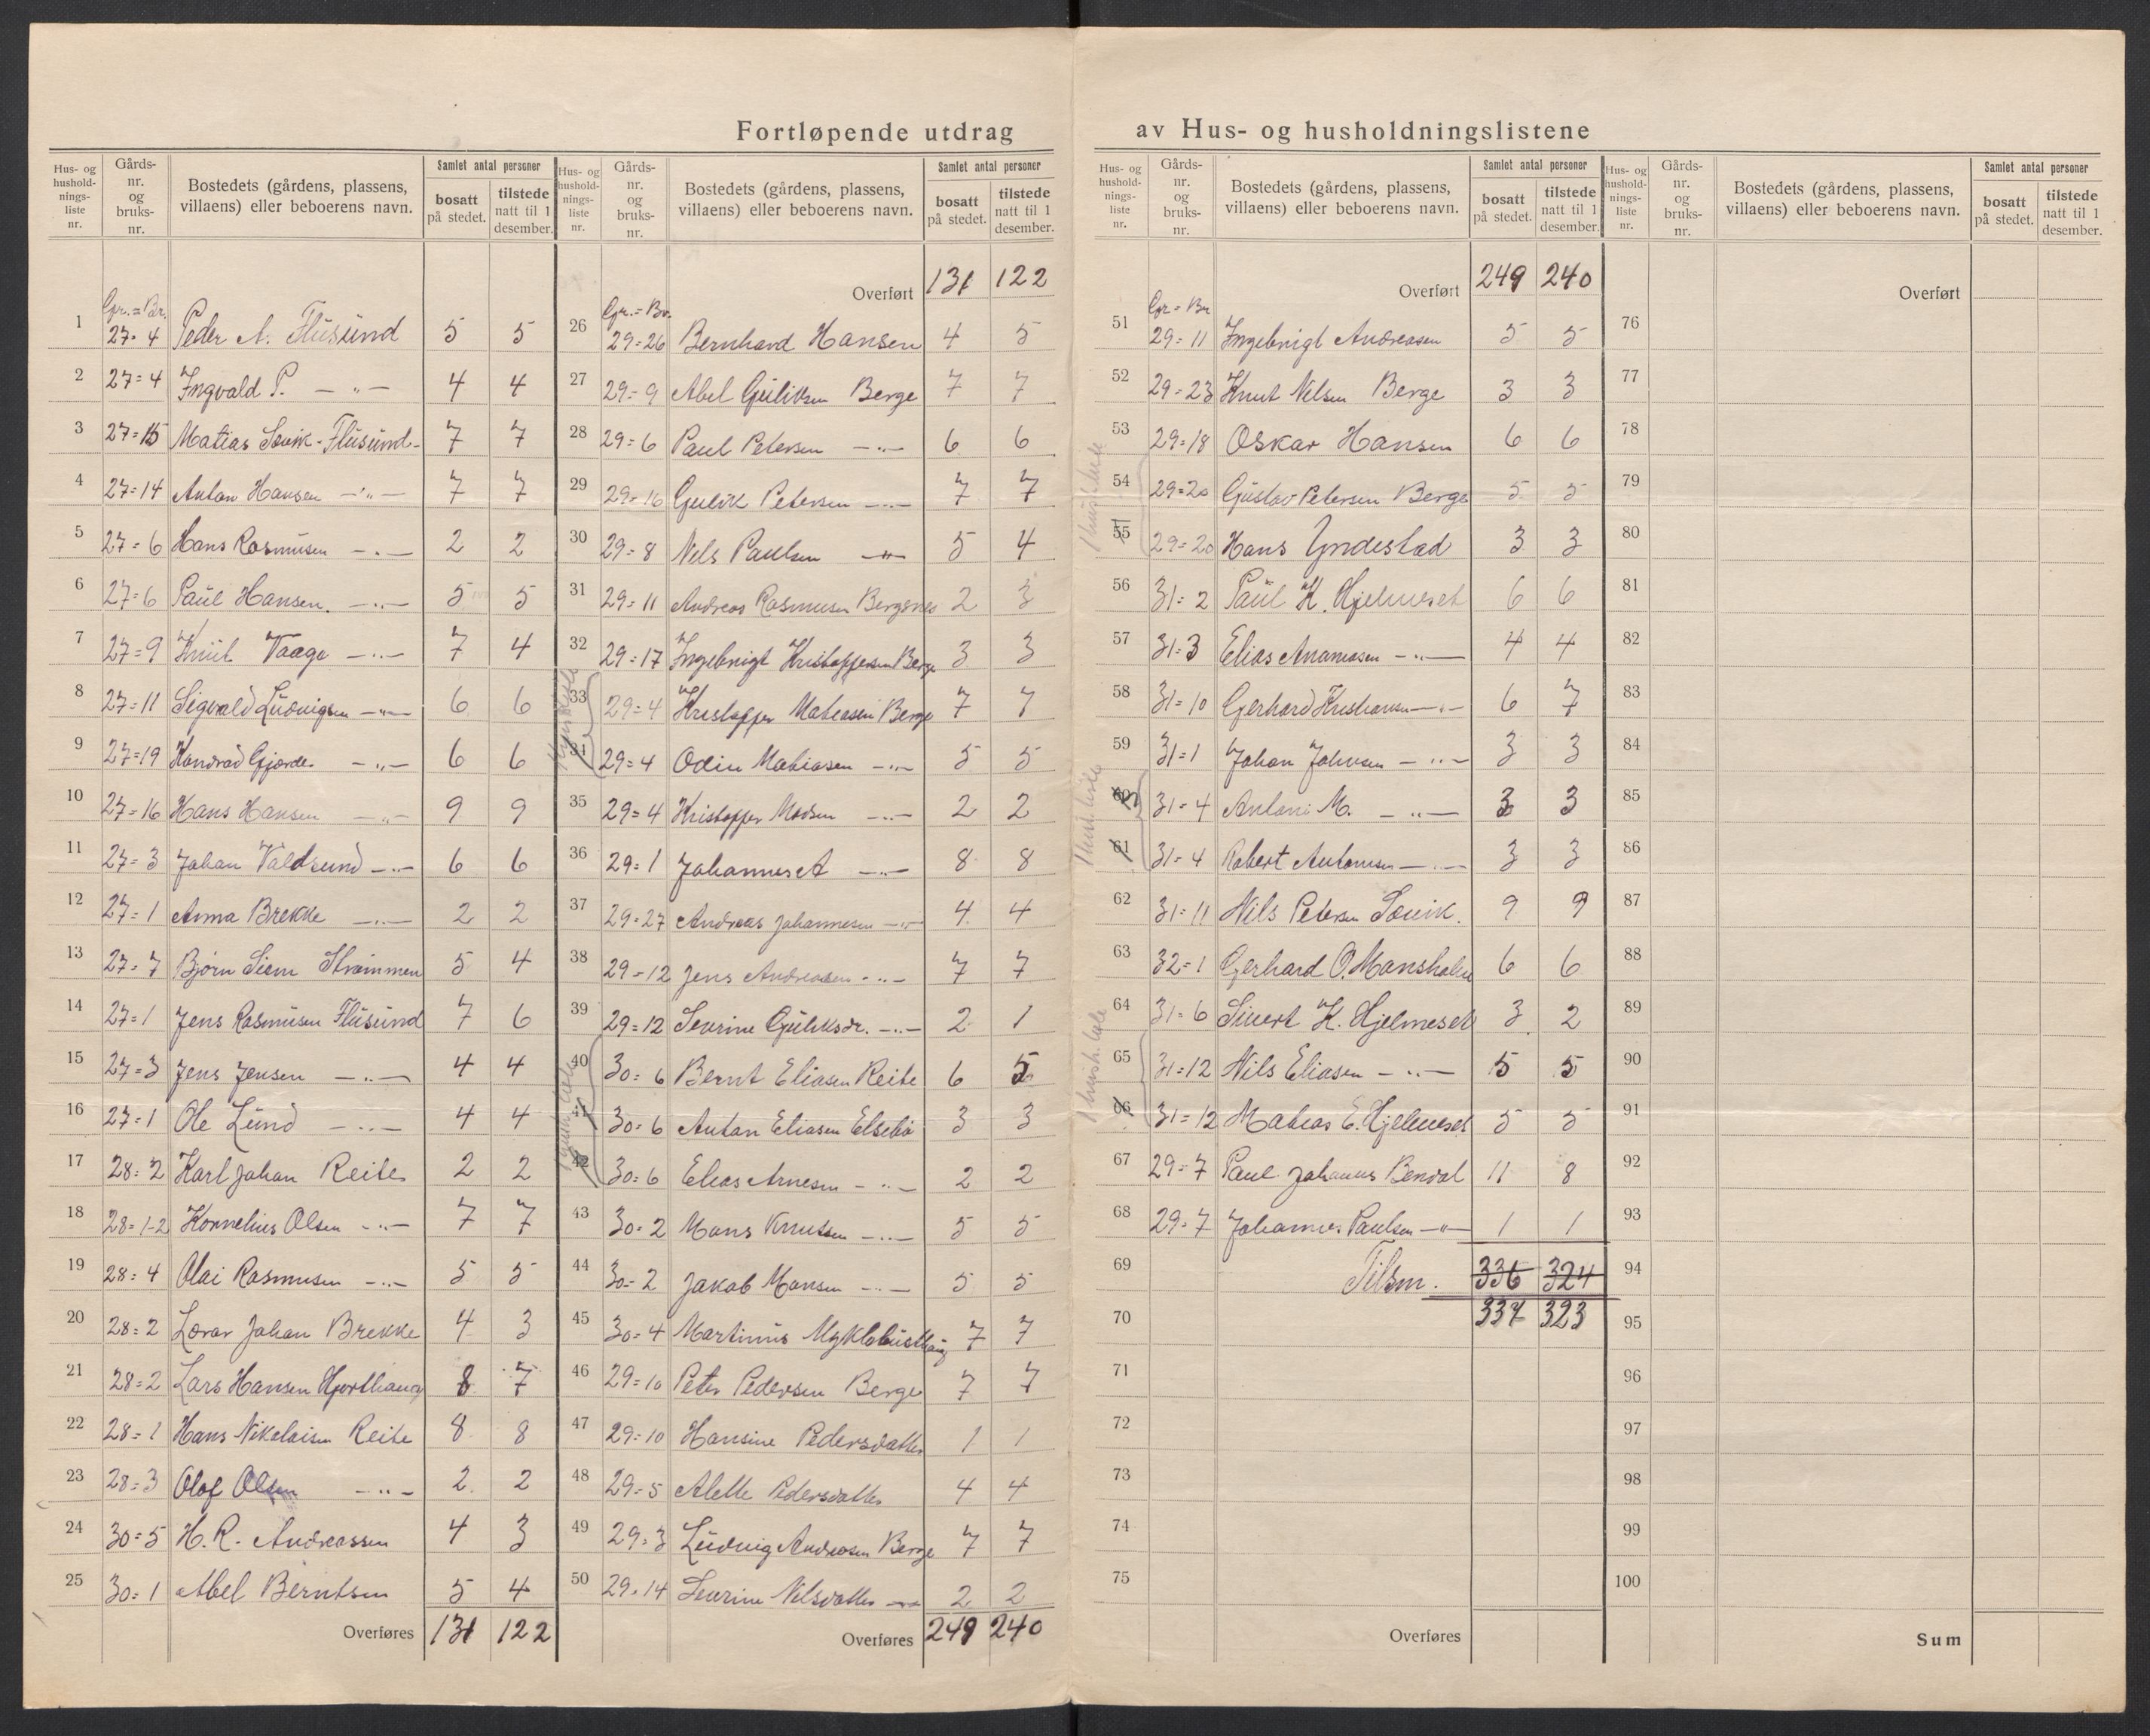 Fortløpende utdrag av Hus- og husholdningslistene
Hus- og husholdnings-liste nr. | Gårds-nr. og bruks-nr. | Bostedets (gårdens, plassens, villaens) eller beboerens navn. | Samlet antal personer bosatt på stedet. | tilstede natt til 1 desember.
Gnr. = Br.
1 27=4 Peder A. Flusund 5 5
2 27=4 Ingvald P. —"— 4 4
3 27=15 Matias Søvik-Flusund 7 7
4 27=14 Anton Hansen —"— 7 7
5 27=6 Hans Rasmusen —"— 2 2
6 27=6 Paul Hansen. —"— 5 5
7 27=9 Knut Vaage —"— 7 4
8 27=11 Sigvald Ludvigsen —"— 6 6
9 27=19 Konrad Gjerde —"— 6 6
10 27=16 Hans Hansen —"— 9 9
11 27=3 Johan Valdsund —"— 6 6
12 27=1 Anna Brekke —"— 2 2
13 27=7 Bjørn Siem Strømmen 5 4
14 27=1 Jens Rasmusen Flusund 7 6
15 27=3 Jens Jensen —"— 4 4
16 27=1 Ole Lund —"— 4 4
17 28=2 Karl Johan Reite 2 2
18 28=1-2 Kornelius Olsen —"— 7 7
19 28=4 Olai Rasmusen —"— 5 5
20 28=2 Johan Brekke 4 3
21 28=2 Lars Hansen Hjorthaug 8 7
22 28=1 Hans Nikolaisen Reite 8 8
23 28=3 Olaf Olsen —"— 2 2
24 30=5 H. R. Andreassen 4 3
25 30=1 Abel Berntsen 5 4
Overføres 131 122
Hus- og husholdnings-liste nr. | Gårds-nr. og bruks-nr. | Bostedets (gårdens, plassens, villaens) eller beboerens navn. | Samlet antal personer bosatt på stedet. | tilstede natt til 1 desember.
Overført 131 122
Gnr. = Br.
26 29=26 Bernhard Hansen 4 5
27 29=9 Abel Guliksen Berge 7 7
28 29=6 Paul Petersen —"— 6 6
29 29=16 Gulik Petersen —"— 7 7
30 29=8 Nels Paulsen —"— 5 4
31 29=11 Andreas Rasmusen Bergsnes 2 3
32 29=17 Ingebrigt Kristoffersen Berge 3 3
33 29=4 Kristoffer Matiasen Berge 7 7
34 29=4 Odin Matiasen —"— 5 5
35 29=4 Kristoffer Madsen —"— 2 2
36 29=1 Johannes A —"— 8 8
37 29=27 Andreas Johannesen —"— 4 4
38 29=12 Jens Andreasen —"— 7 7
39 29=12 Severine Guliksdr. —"— 2 1
40 30=6 Bernt Eliasen Reite 6 5
41 30=6 Anton Eliasen Elsebø 3 3
42 30=6 Elias Arnesen —"— 2 2
43 30=2 Mons Knutsen —"— 5 5
44 30=2 Jakob Monsen —"— 5 5
45 30=4 Martinus Myklebusthaug 7 7
46 29=10 Peter Pedersen Berge 7 7
47 29=10 Hansine Pedersdatter 1 1
48 29=5 Alette Pedersdatter 4 4
49 29=3 Ludvig Andreasen Berge 7 7
50 29=14 Severine Nelsdatter —"— 2 2
Overføres 249 240
Hus- og husholdnings-liste nr. | Gårds-nr. og bruks-nr. | Bostedets (gårdens, plassens, villaens) eller beboerens navn. | Samlet antal personer bosatt på stedet. | tilstede natt til 1 desember.
Overført 249 240
Gnr = Br
51 29=11 Ingebrigt Andreasen 5 5
52 29=23 Knut Nelsen Berge 3 3
53 29=18 Oskar Hansen 6 6
54 29=20 Gustav Petersen Berge 5 5
55 29=20 Hans Yndestad 3 3
56 31=2 Paul K. Hjelmeset 6 6
57 31=3 Elias Ananiasen —"— 4 4
58 31=10 Gerhard Kristiansen —"— 6 7
59 31=1 Johan Johnsen —"— 3 3
60 31=4 Antoni M. —"— 3 3
61 31=4 Robert Antonisen —"— 3 3
62 31=11 Nils Petersen Søvik. 9 9
63 32=1 Gerhard O. Mansholm 6 6
64 31=6 Sivert K. Hjelmeset 3 2
65 31=12 Nils Eliasen —"— 5 5
66 31=12 Matias E. Hjelmeset 5 5
67 29=7 Paul Johannes Bendal 11 8
68 29=7 Johannes Paulsen —"— 1 1
69 Tilsm. 336 324
70 337 323
71
72
73
74
75
Overføres
Hus- og husholdnings-liste nr. | Gårds-nr. og bruks-nr. | Bostedets (gårdens, plassens, villaens) eller beboerens navn. | Samlet antal personer bosatt på stedet. | tilstede natt til 1 desember.
Overført
76
77
78
79
80
81
82
83
84
85
86
87
88
89
90
91
92
93
94
95
96
97
98
99
100
Sum